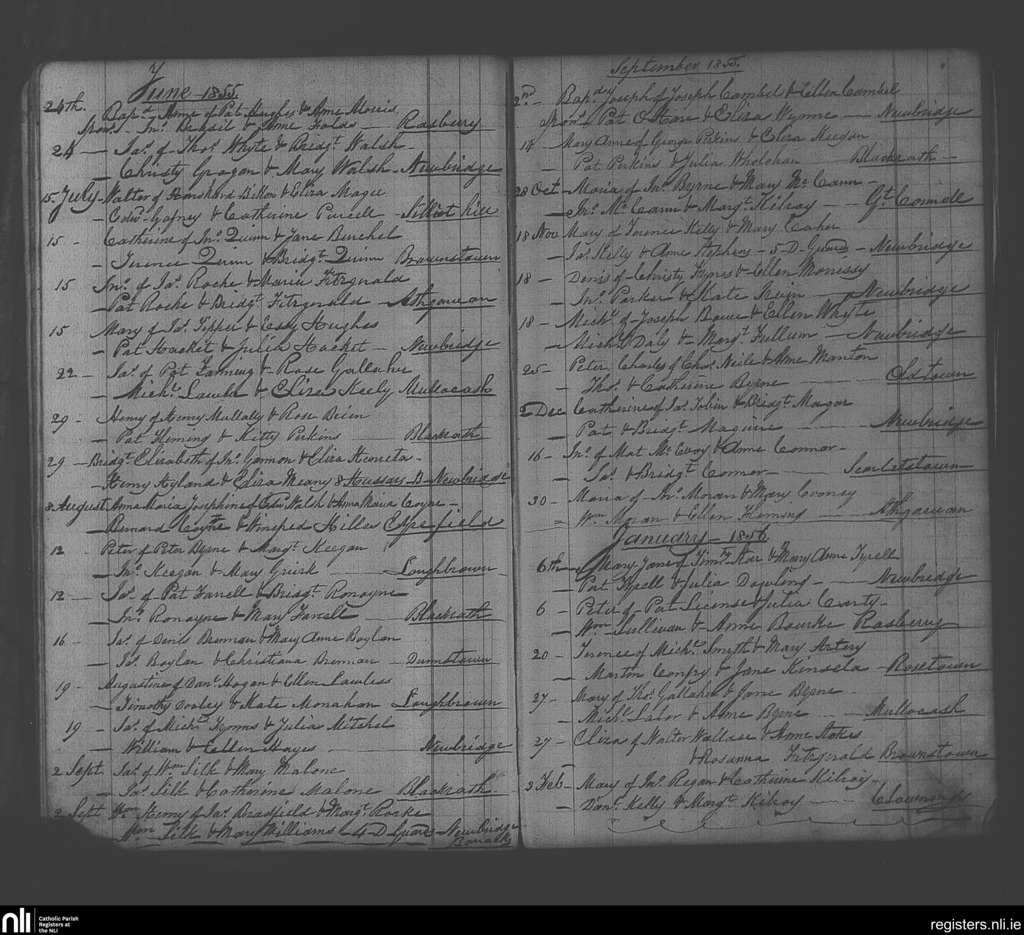 June 1855.
24th. Bapd. Anne of Pat Hughes & Anne Moris
Spons. Jno. Brasil & Anne Fields — Rosberry
24 — Jas. of Thos. Whyte & Bridgt. Walsh —
— Christy Grogan & Mary Walsh — Newbridge
15 July — Walter of & Eliza Magee
— Edwd. Gafney & Catherine Purcell — Silliot hill
15 — Catherine of Jno. Quinn & Jane Berchel
— Terence Quinn & Bridgt. Quinn Brownstown
15 Jno. of Jas. Roche & Maria Fitzgerald
Pat Roche & Bridgt. Fitzgerald — Athgarvan
15 Mary of Jas. Tipper & Essy Hughes
— Pat Hacket & Julia Hacket — Newbridge
22 — Jas. of Pat Laming & Rose Gallahe
— Michl. & Eliza Keely Mullocash
29 — Henry of Henry Mullally & Rose Brien
— Pat Fleming & Kitty Perkins — Blackrath
29 — Bridgt. Elizabeth of Jno. Gannon & Eliza
Henry Hyland & Eliza Meany 8 Hussars B — Newbridge
8 August Anna Maria Josephine of Edwd. Walsh & Anna Maria Coyne —
— Bernard Coyne & Winifred Hilles
12 — Peter of Peter Byrne & Margt. Keegan
— Jno. Keegan & Mary — Loughbrown
12 — Jas. of Pat Farrell & Bridgt. Ronayne
— Jno. Ronayne & Mary Farrell — Blackrath
16 — Jas. of Denis Brennan & Mary Anne Boylan
— Jas. Boylan & Christiana Brennan — Dunnstown
19 — Augustine of Danl. Hogan & Ellen Lawless
— Timothy Cooley & Kate Monahan Loughbrown
19 — Jas. of Michl. & Julia Mitchel
— William & Ellen Hayes — Newbridge
2 Sept. Jas. of Wm. Silk & Mary Malone
— Jas. Silk & Catherine Malone Blackrath —
2 Sept. Wm. Henry of Jas. Bradfield & Margt. Roche
Wm. Silk & Mary Williams — 4 D. Guars — Newbridge
Barracks
September 1855.
2nd — Bapd. Joseph of Joseph Cambel & Ellen Cambel
Spons. Pat & Eliza Wynne — Newbridge
14 — Mary Anne of George Perkins & Eliza
Pat Perkins & Julia Wholohan Blackrath —
28 Oct — Maria of Jno. Byrne & Mary Mc Cann —
— Jno. Mc Cann & Margt. Kilroy — Gt. Connell
18 Nov Mary of Terence Kelly & Mary Caher
— Jas. Kelly & Anne Stephens — 5 D. Guards — Newbridge
18 — Denis of Christy Hynes & Ellen
— Jno. Parker & Kate — Newbridge
18 — Michl. of Joseph & Ellen Whyte
— Michl. Daly & Margt. Fullum — Newbridge
25 — Peter Charles of Chas. Neile & Anne Manton
— Thos. & Catherine Byrne — Oldtown
2 Dec Catherine of Jas. Tobin & Bridgt. Magar
— Pat & Bridgt. Maguire — Newbridge
16 — Jno. of Mat Mc Evoy & Anne Connor —
— Jas. & Bridgt. Connor — Scarletstown
30 — Maria of Jno. Moran & Mary Cooney
— Wm. Moran & Ellen Fleming — Athgarvan
January — 1856
6th — Mary Jane of Timy. & Mary Anne Tyrell
— Pat Tyrell & Julia Dowling — Newbridge
6 — Peter of Pat & Julia Carty —
— Wm. Sullivan & Anne Bourke Rosberry
20 — Terence of Michl. Smyth & Mary Artery
— Martin Confry & Jane Kinsela — Rosetown
27 — Mary of Thos. Gallaher & Jane Byrne —
— Michl. Lalor & Anne Byrne — Mullocash
27 — Eliza of Walter Wallace & Anne Stokes
& Rosanna Fitzgerald Brownstown
3 Feb — Mary of Jno. Regan & Catherine Kilroy —
— Danl. Kelly & Margt. Kilroy —
nli
Catholic Parish
Registers at
the NLI
registers.nli.ie